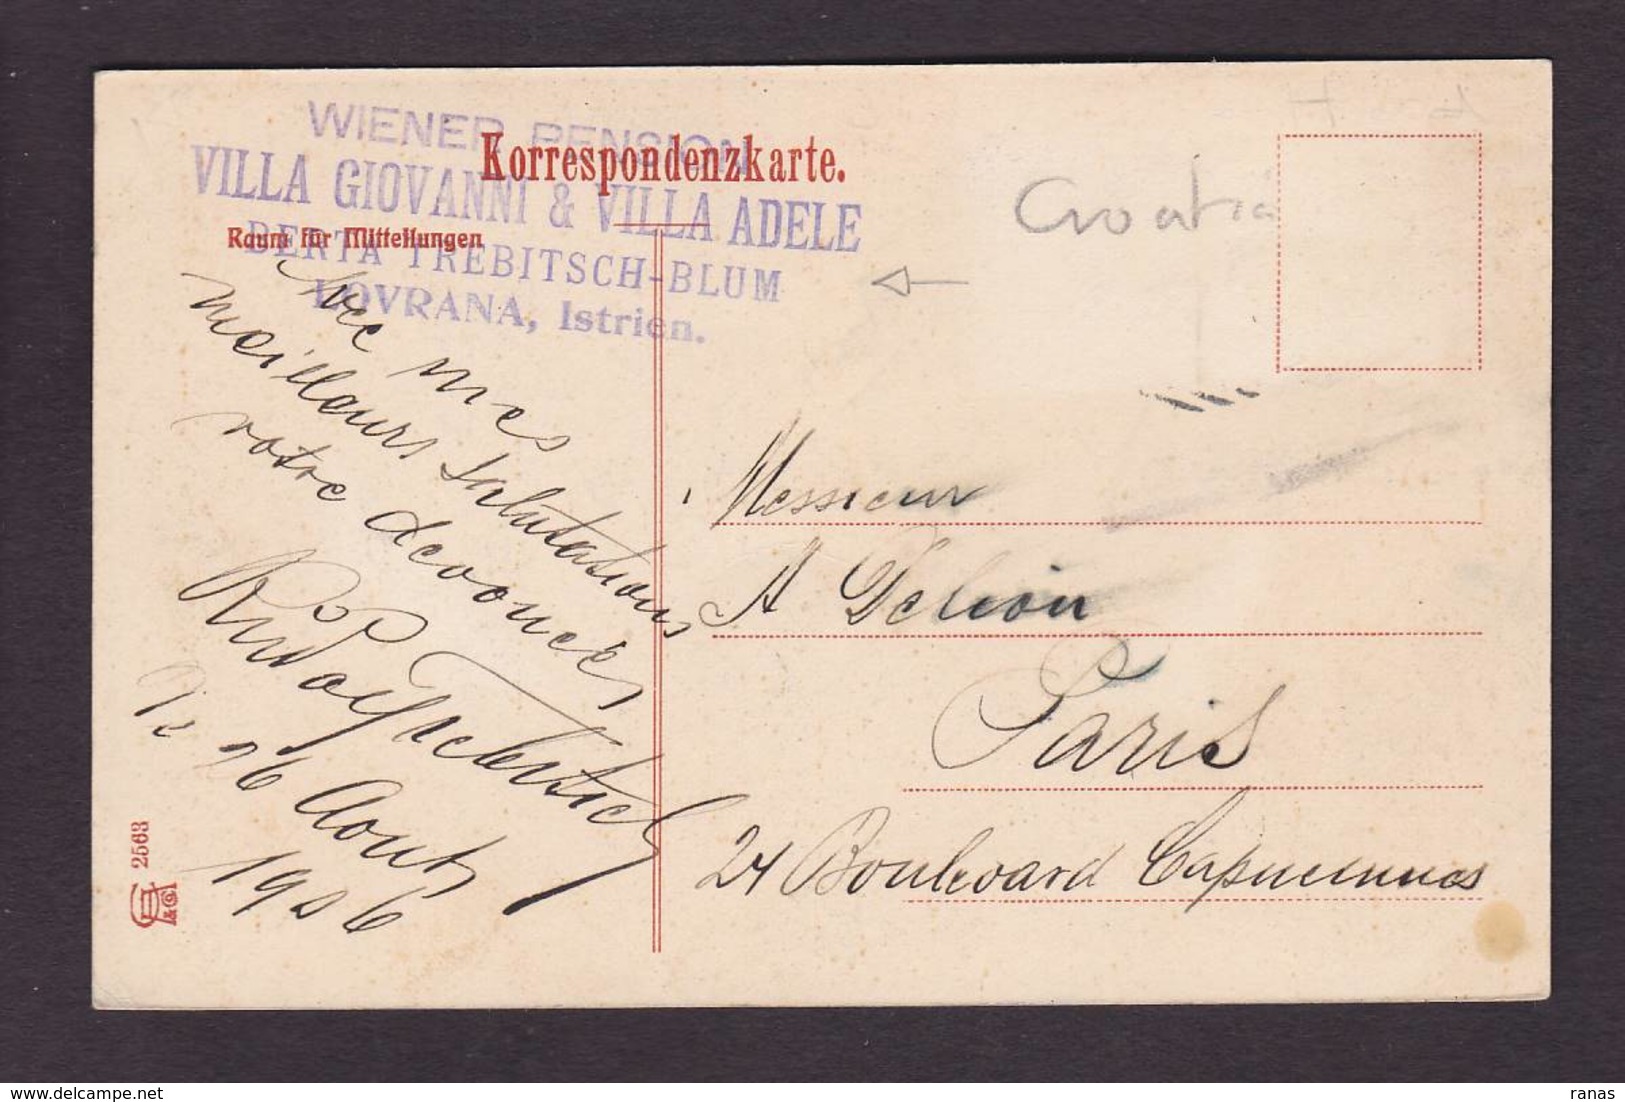 WIENER PENSION
Korrespondenzkarte.
VILLA GIOVANNI & VILLA ADELE
Raum für Mitteilungen
BERTA TREBITSCH-BLUM
LOVRANA, Istrien.
Croatia
Avec mes
meilleurs Salutations
votre devouée
Trebitsch
26 Aout
1906
2563
& Co
Messieur
A Deleon
Paris
24 Boulevard Capucinnes
delcampe.net
ranas